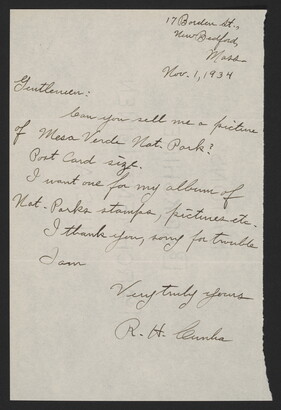 17 Borden St.,
New Bedford,
Mass.
Nov. 1, 1934
Gentlemen:
Can you sell me a picture
of Mesa Verde Nat. Park?
Post Card size.
I want one for my album of
Nat. Parks stamps, pictures etc.
I thank you, sorry for trouble
I am
Very truly yours
R. H. Cunha